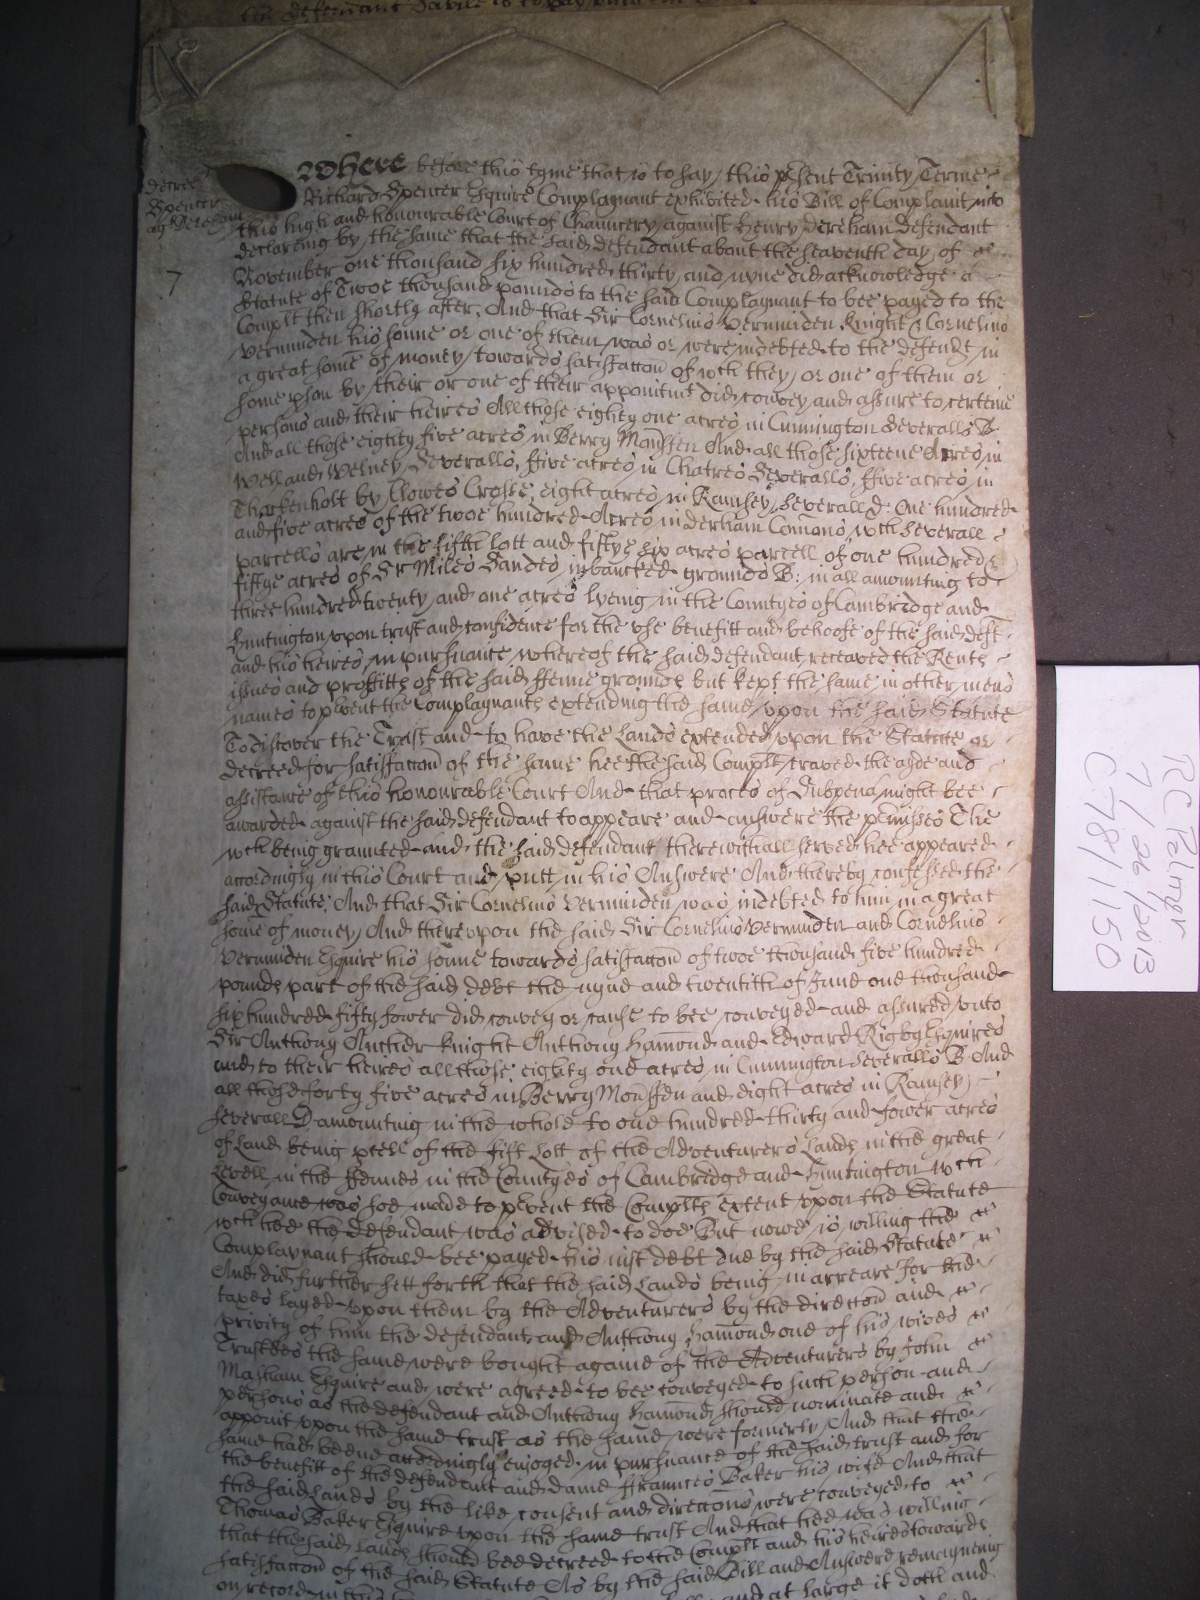 the defendant is to pay unto
decree
Spencer
agt Dereham
7
Where before this tyme that is to say this psent Trinity Terme
Richard Spencer Esquire Complaynant exhibited his Bill of Complaint into
this high and honourable Court of Chauncery against Henry Dereham defendant
declareing by the same that the said defendant about the seaventh day of
November one thousand six hundred thirty and nyne did acknowledge a
Statute of Twoe thousand pounds to the said Complaynant to bee payed to the
Complt then shortly after, And that Sir Cornelius Vermuiden Knight & Cornelius
Vermuiden his sonne or one of them was or were indebted to the defendt in
a great some of money towards satisfaccon of wch they or one of them or
some pson by their or one of their appointmt did convey and assure to certeine
persons and their heires All those eighty one acres in Cunnington Severalls B
And all those eighty five acres in Berry Mounssen And all those sixteene Acres in
Well and Welney Severalls, five acres in Chatres Severalls, ffive acres in
Tharkenholt by Clowes Crosse, eight acres in Ramsey Severall D: One hundred
and five acres of the twoe hundred Acres in derham Comons, wch severall
parcells are in the fifth lott and fiftye six acres parcell of one hundred
fiftye acres of Sr Miles Sandes inbancked grounds B: in all amounting to
three hundred twenty and one acres lyeing in the Countyes of Cambridge and
Huntington upon trust and confidence for the use benefitt and behoofe of the said deft
and his heires in pursuance whereof the said defendant receaved the Rents
issues and proffitts of the said ffenne grounds but kept the same in other mens
names to pvent the Complaynants extending the same upon the said Statute
To discover the Trust and to have the Lands extended upon the Statute or
decreed for satisfaccon of the same hee the said Complt craved the ayde and
assistance of this honourable Court And that proces of Subpena might bee
awarded against the said defendant to appeare and answere the pmisses The
wch being graunted and the said defendant therewithall served hee appeared
accordingly in this Court and putt in his Answere And thereby confessed the
said Statute, And that Sir Cornelius Vermuiden was indebted to him in a great
some of money, And thereupon the said Sir Cornelius Vermuiden and Cornelius
Vermuiden Esquire his sonne towards satisfaccon of twoe thousand five hundred
pounds part of the said debt the nyne and twentith of June one thousand
six hundred fifty fower did convey or cause to bee conveyed and assured unto
Sir Anthony Archer Knight Anthony Hamond and Edward Rigby Esquires
and to their heires all those eighty one acres in Cunnington Severalls B And
all those forty five acres in Berry Mounssen and eight acres in Ramsey
Severall D amounting in the whole to one hundred thirty and fower acres
of Land being pcell of the fift Lott of the Adventurers Lands in the great
Levell in the ffennes in the Countyes of Cambridge and Huntington wch
Conveyance was soe made to pvent the Complts extent upon the Statute
wch hee the defendant was advised to doe But nowe is willing the
Complaynant should bee payed his just debt due by the said Statute
And did further sett forth that the said Lands being in arreare for the
taxes layed upon them by the Adventurers by the direccon and
privity of him the defendant and Anthony Hamond one of his wives
Trustees the same were bought againe of the Adventurers by John
Masham Esquire and were agreed to bee conveyed to such person and
persons as the defendant and Anthony Hamond should nominate and
appoint upon the same trust as the same were formerly, And that the
same had beene accordingly enjoyed in pursuance of the said trust and for
the benefitt of the defendant and dame ffraunces Baker his wife And that
the said Lands by the like consent and direccons were conveyed to
Thomas Baker Esquire upon the same trust And that hee was willing
that the said Lands should bee decreed to the Complt and his heires towards
satisfaccon of the said Statute As by the said Bill and Answere remayneing
on record in this and at large it doth and
RC Palmer
7/26/2013
C78/1150